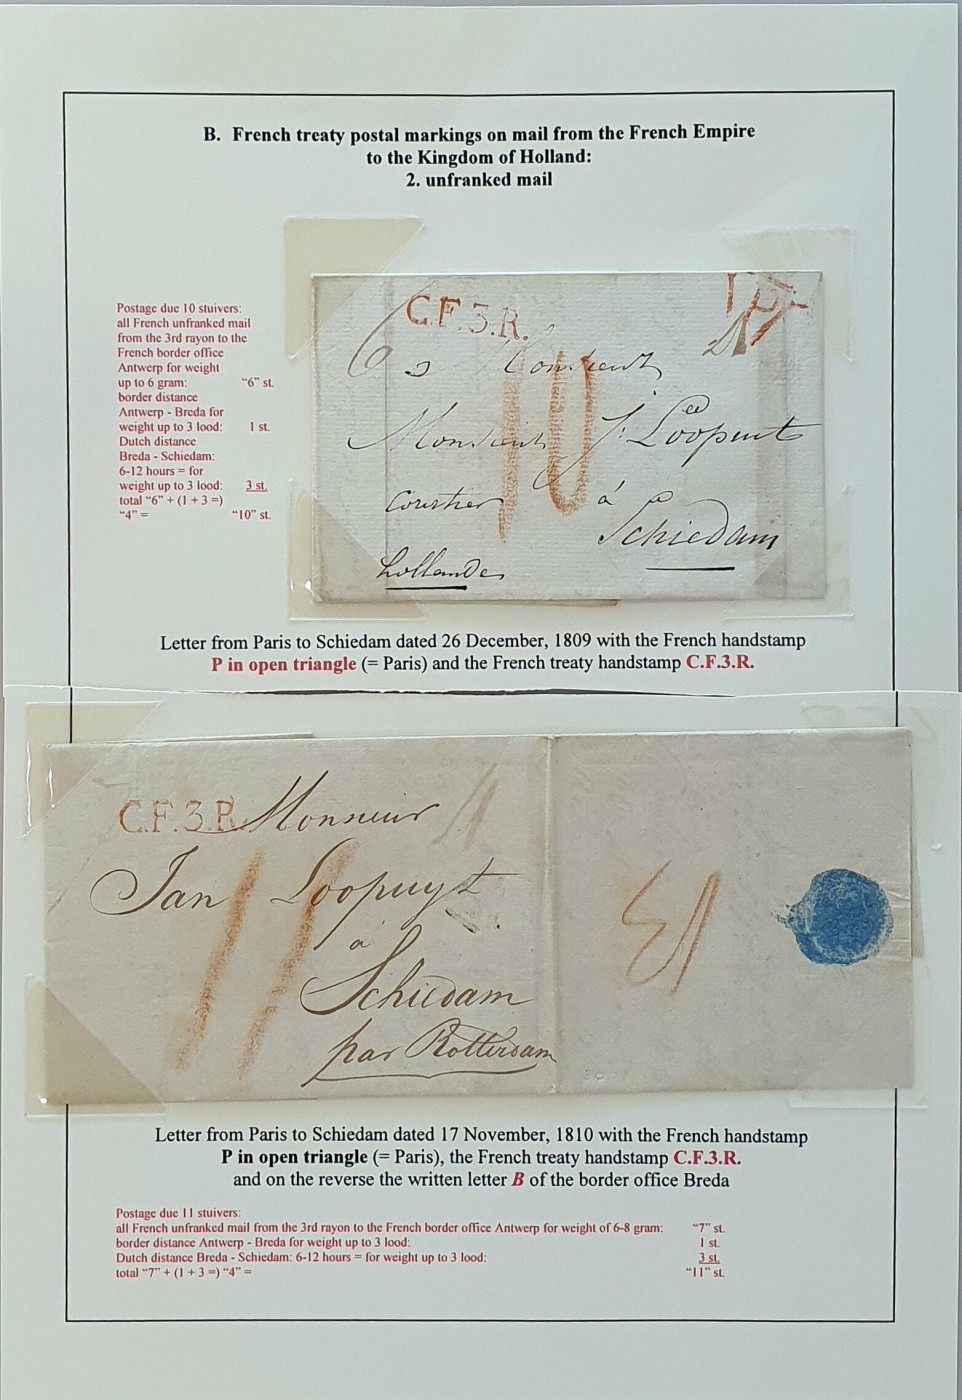 B. French treaty postal markings on mail from the French Empire
to the Kingdom of Holland:
2. unfranked mail
Postage due 10 stuivers:
all French unfranked mail
from the 3rd rayon to the
French border office
Antwerp for weight
up to 6 gram: “6” st.
border distance
Antwerp - Breda for
weight up to 3 lood: 1 st.
Dutch distance
Breda - Schiedam:
6-12 hours = for
weight up to 3 lood: 3 st.
total “6” + (1 + 3 =)
“4” = “10” st.
C.F.3.R.
P
6
Monsieur
10
Monsieur J: Loopuit
courtier à
Schiedam
hollande
Letter from Paris to Schiedam dated 26 December, 1809 with the French handstamp
P in open triangle (= Paris) and the French treaty handstamp C.F.3.R.
C.F.3.R. Monsieur
Jan Loopuyt
11
à
Schiedam
par Rotterdam
B
Letter from Paris to Schiedam dated 17 November, 1810 with the French handstamp
P in open triangle (= Paris), the French treaty handstamp C.F.3.R.
and on the reverse the written letter B of the border office Breda
Postage due 11 stuivers:
all French unfranked mail from the 3rd rayon to the French border office Antwerp for weight of 6-8 gram: “7” st.
border distance Antwerp - Breda for weight up to 3 lood: 1 st.
Dutch distance Breda - Schiedam: 6-12 hours = for weight up to 3 lood: 3 st.
total “7” + (1 + 3 =) “4” = “11” st.